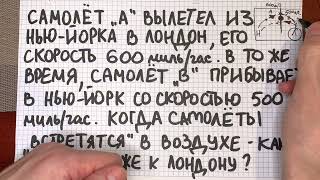 САМОЛЁТ „А" ВЫЛЕТЕЛ ИЗ
НЬЮ-ЙОРКА В ЛОНДОН, ЕГО
СКОРОСТЬ 600 МИЛЬ/ЧАС. В ТО ЖЕ
ВРЕМЯ, САМОЛЁТ „В" ПРИБЫВАЕТ
В НЬЮ-ЙОРК СО СКОРОСТЬЮ 500
МИЛЬ/ЧАС. КОГДА САМОЛЁТЫ
„ВСТРЕТЯТСЯ" В ВОЗДУХЕ - КАК
ЖЕ К ЛОНДОНУ?